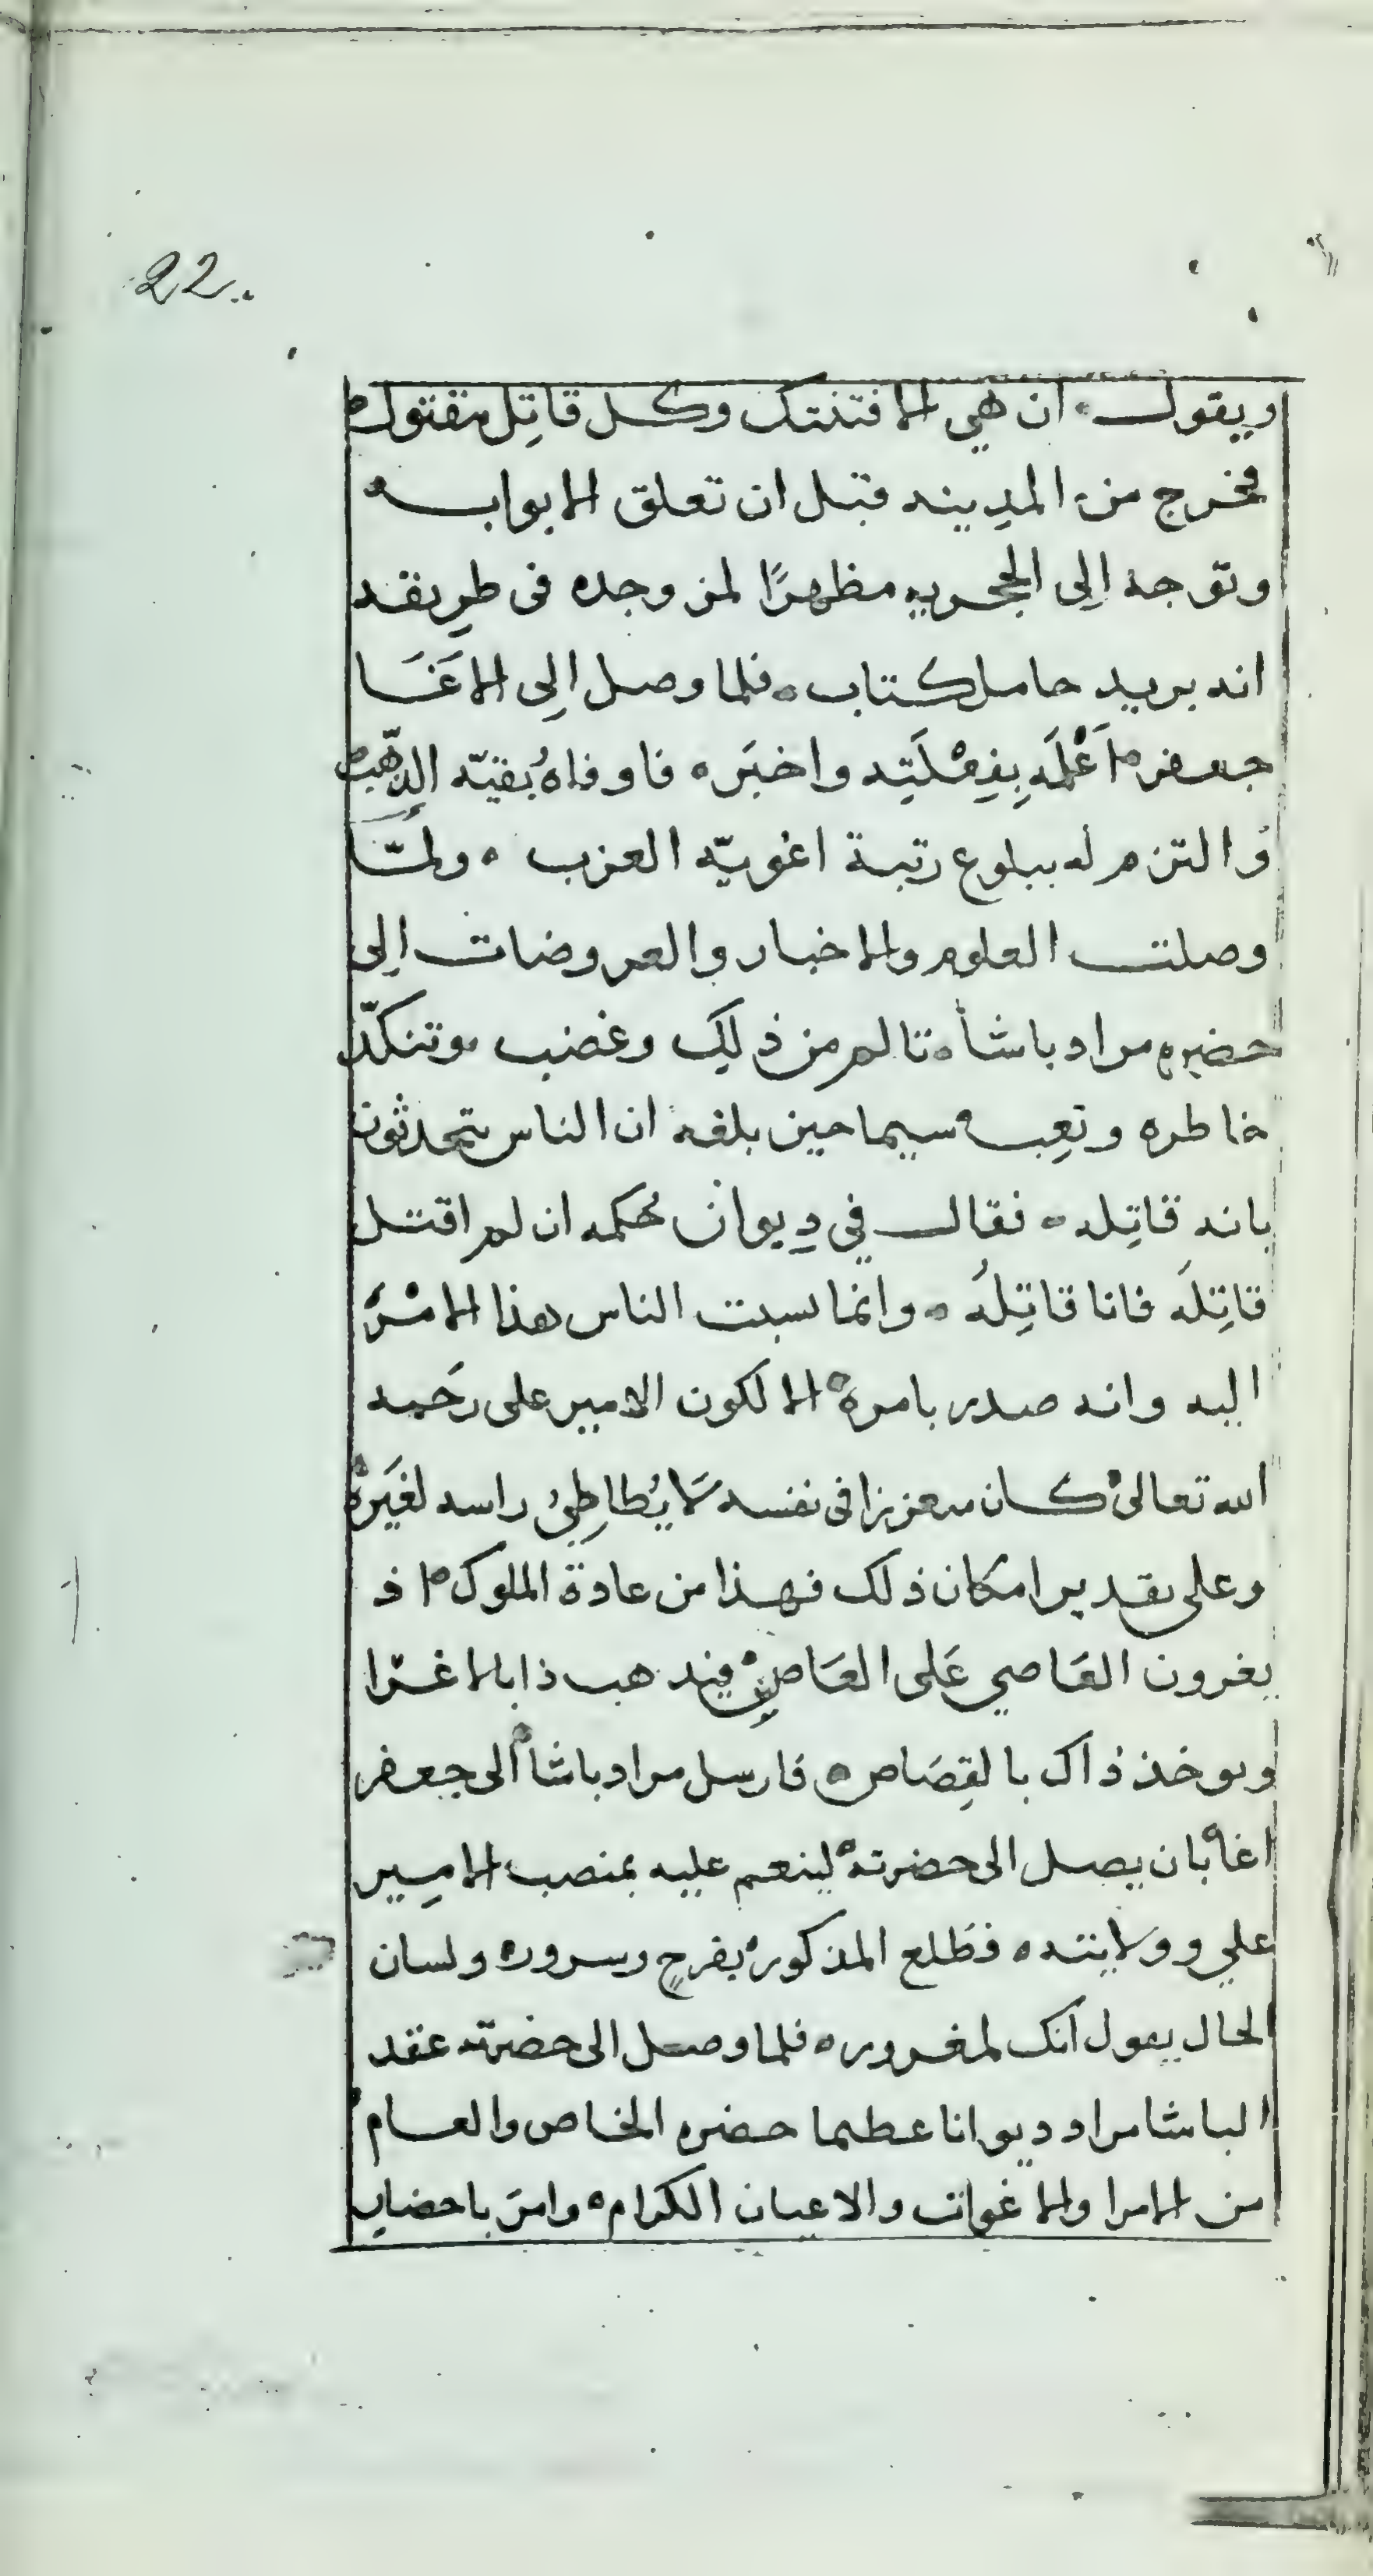 22
ويقول ان هي الا فتنتك وكل قاتل مقتول
فخرج من المدينه قبل ان تعلق الابواب
وتوجه الى الحجريه مظهرًا لمن وجده فى طريقه
انه بريد حامل كتاب فلما وصل الى الاغَا
جعفر اَعْلَمه بِفِعْلَتِه واخبَره فاوفاهُ بقيّه الذّهب
والتزم له ببلوع رتبة اغويّه العزب ولمّا
وصلت العلوم والاخبار والعروضات الى
حضره مراد باشا تالم من ذلك وغضب وتنكّد
خاطره وتعب سيما حين بلغه ان الناس يتحدثون
بانه قاتله فقال في ديوان حكمه ان لم اقتل
قاتلَه فانا قاتِلهُ وانما نسبت الناس هذا الامْرَ
اليه وانه صدر بامره الا لكون الامير على رحَمه
الله تعالى كان معززا فى نفسه لَا يُطاطِئ راسه لغَيَره
وعلى تقدير امكان ذلك فهذا من عادة الملوك اذ
يغرون العَاصي عَلى العَاصِي فيذهب ذا بالاغرا
ويوخذ ذاك بالقِصَاص فارسل مراد باشا الى جعفر
اغا بان يصل الى حضرته لينعم عليه بمنصب الامير
علي وولايته فطَلع المذكور بفرحٍ وسرور ولسان
الحال يقول انك لمغرور فلما وصل الى حضرته عقد
الباشا مراد ديوانا عظيما حضره الخاص والعام
من الامرا والاغوات والاعيان الكرام وامَر باحضار